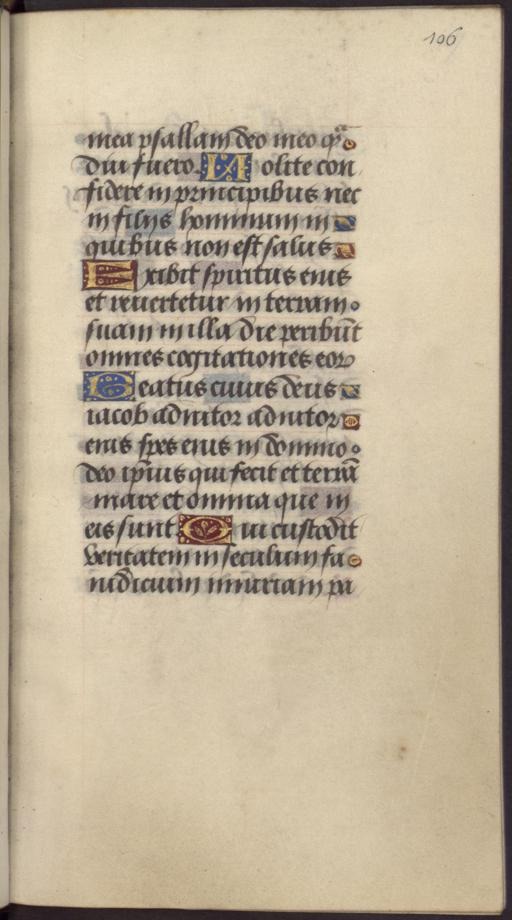 106
mea psallam deo meo qͣ
diu fuero. Nolite con
fidere in principibus nec
in filijs hominum in
quibus non est salus
Exibit spiritus eius
et reuertetur in terram
suam in illa die peribūt
omnes cogitationes eoꝝ
Beatus cuius deus
iacob adiutor adiutor
eius spes eius in domino
deo ip̄ius qui fecit et terrā
mare et omnia que in
eis sunt Qui custodit
veritatem in seculum fa
iudicium iniuriam pa